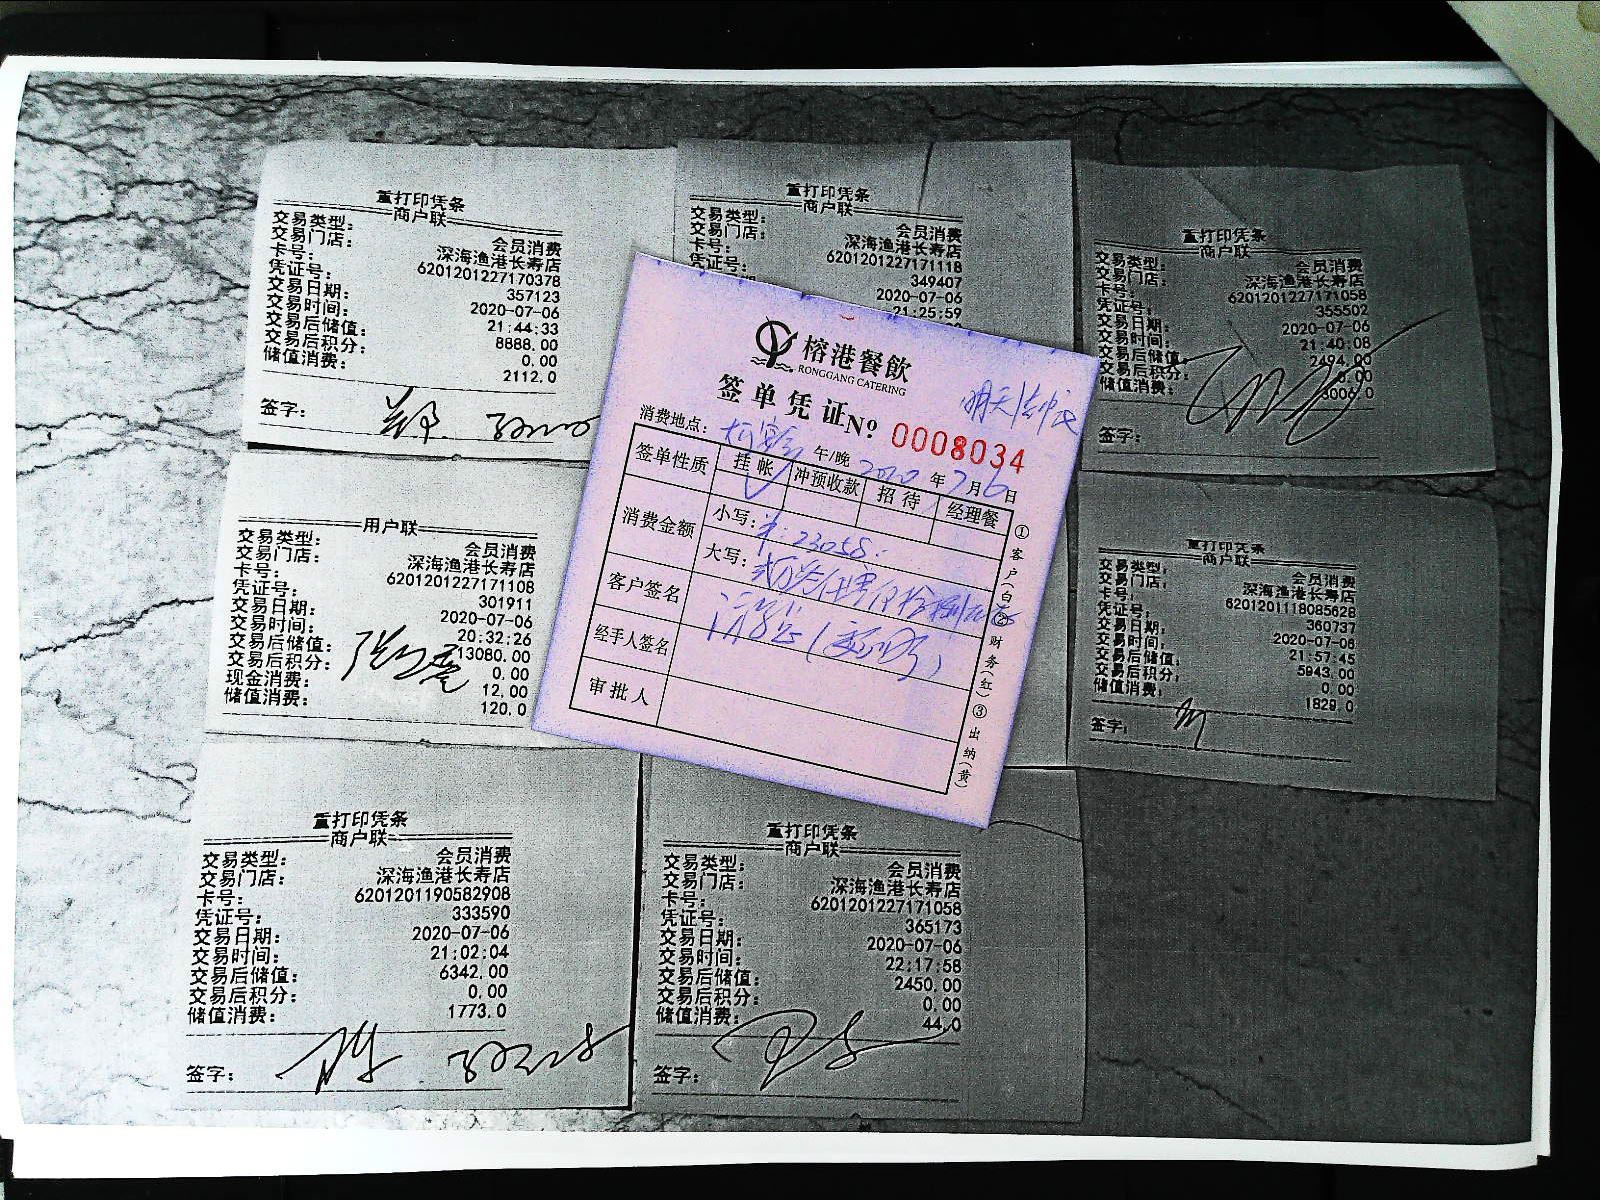 重打印凭条
商户联
交易类型: 会员消费
交易门店: 深海渔港长寿店
卡号: 6201201227170378
凭证号: 357123
交易日期: 2020-07-06
交易时间: 21:44:33
交易后储值: 8888.00
交易后积分: 0.00
储值消费: 2112.0
签字:
重打印凭条
商户联
交易类型: 会员消费
交易门店: 深海渔港长寿店
卡号: 6201201227171118
凭证号: 349407
2020-07-06
21:25:59
重打印凭条
商户联
交易类型: 会员消费
交易门店: 深海渔港长寿店
卡号: 6201201227171058
凭证号: 355502
交易日期: 2020-07-06
交易时间: 21:40:08
交易后储值: 2494.00
交易后积分: 0.00
储值消费: 3006.0
签字:
榕港餐飲
RONGGANG CATERING
签单凭证No: 0008034
消费地点: 午/晚 2020年7月6日
签单性质 挂帐 冲预收款 招待 经理餐
消费金额 小写: 23058.
大写:
客户签名
经手人签名
审批人
①客户(白)②财务(红)③出纳(黄)
用户联
交易类型: 会员消费
交易门店: 深海渔港长寿店
卡号: 6201201227171108
凭证号: 301911
交易日期: 2020-07-06
交易时间: 20:32:26
交易后储值: 13080.00
交易后积分: 0.00
现金消费: 12.00
储值消费: 120.0
重打印凭条
商户联
交易类型: 会员消费
交易门店: 深海渔港长寿店
卡号: 6201201118085628
凭证号: 360737
交易日期: 2020-07-06
交易时间: 21:57:45
交易后储值: 5943.00
交易后积分: 0.00
储值消费: 1829.0
签字:
重打印凭条
商户联
交易类型: 会员消费
交易门店: 深海渔港长寿店
卡号: 6201201190582908
凭证号: 333590
交易日期: 2020-07-06
交易时间: 21:02:04
交易后储值: 6342.00
交易后积分: 0.00
储值消费: 1773.0
签字:
重打印凭条
商户联
交易类型: 会员消费
交易门店: 深海渔港长寿店
卡号: 6201201227171058
凭证号: 365173
交易日期: 2020-07-06
交易时间: 22:17:58
交易后储值: 2450.00
交易后积分: 0.00
储值消费: 44.0
签字: